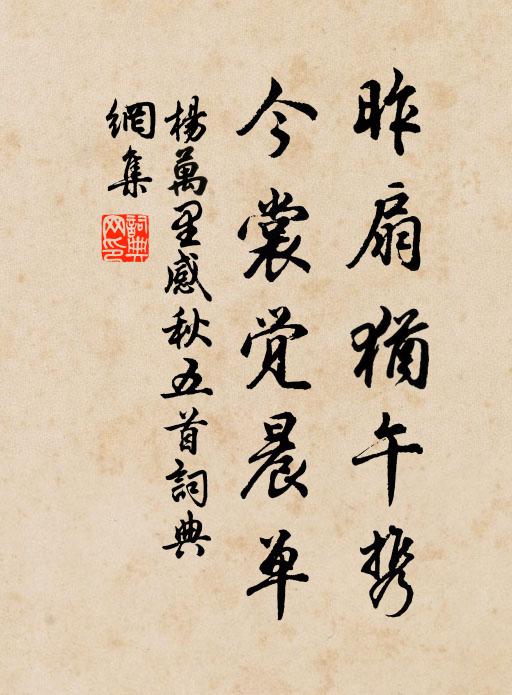 昨扇猶午携
今裳觉晨单
楊萬里感秋五首詞典
網集
詞典網印